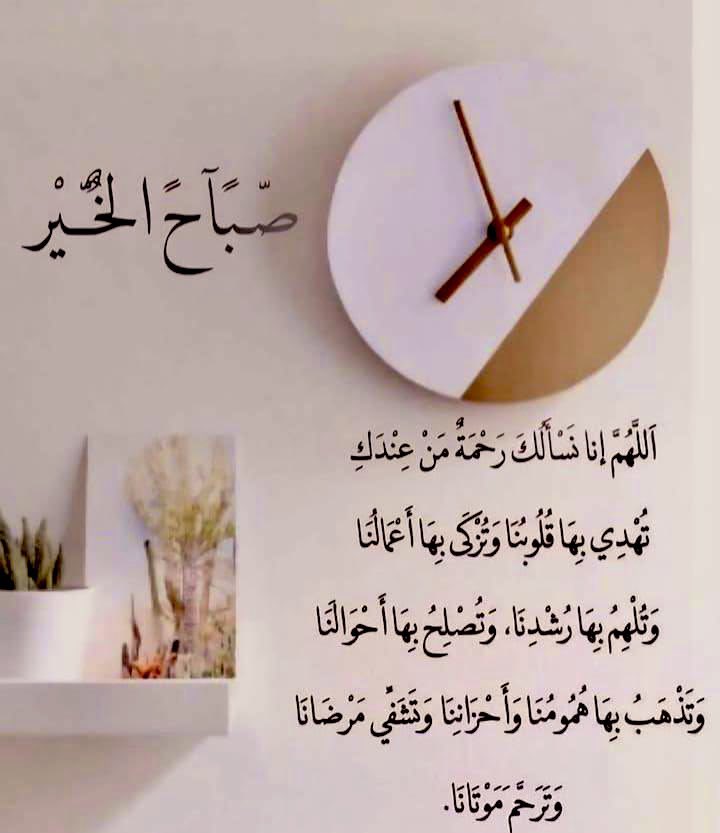 صّبًآحً الخٌيْر
اَللَّهُمَّ إنا نَسْأَلُكَ رَحْمَةٌ مَنْ عِنْدَكِ
تُهْدِي بِهَا قُلُوبُنَا وَتُزْكَى بِهَا أَعْمَالُنَا
وَتُلْهِمُ بِهَا رُشْدِنَا، وَتُصْلِحُ بِهَا أَحْوَالَنَا
وَتَذْهَبُ بِهَا هُمُومُنَا وَأَحْزَانِنَا وَتَشَفِّي مَرْضَانَا
وَتَرَحَّمَ مَوْتَانَا.